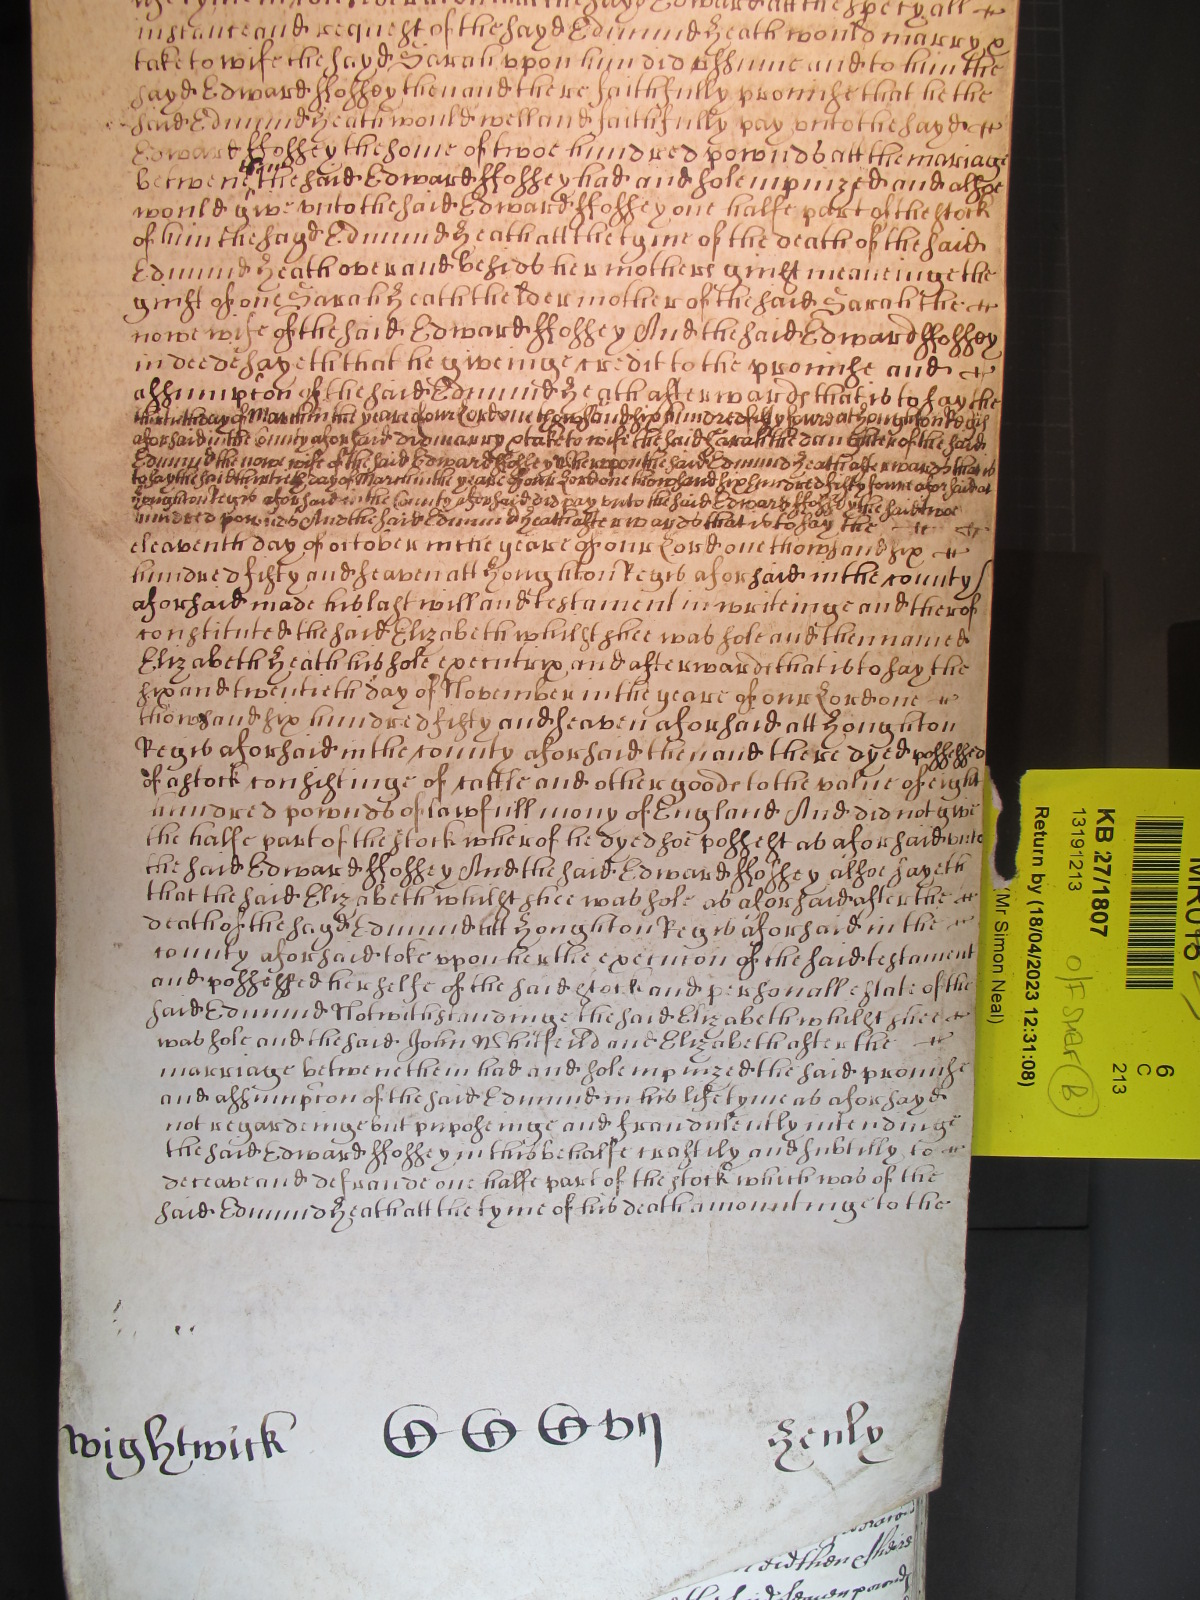 instance and request of the sayd Edmund Heath would marry &
take to wife the sayd Sarah upon him did assume and to him the
sayd Edward ffossey then and there faithfully promise that he the
said Edmund Heath would well and faithfully pay unto the sayd
Edward ffossey the some of twoe hundred pownds att the mariage
betwene the said Edward ffossey had and solempnized and alsoe
would give unto the said Edward ffossey one halfe part of the stock
of him the sayd Edmund Heath att the tyme of the death of the said
Edmund Heath over and besids her mothers guift meaneinge the
guift of one Sarah Heath the elder mother of the said Sarah the
nowe wife of the said Edward ffossey And the said Edward ffossey
in deed sayeth that he giveinge credit to the promise and
assumpcon of the said Edmund Heath afterwards that is to say the
thirtith day of March in the yeare of our Lord one thowsand six hundred fifty fowre at Houghton Regis
aforsaid in the County aforsaid did marry & take to wife the said Sarah the daughter of the said
Edmund the nowe wife of the said Edward ffossey Wherupon the said Edmund Heath afterwards that is
to say the said thirtieth day of March in the yeare of our Lord one thowsand six hundred fifty fowre aforsaid at
Houghton Regis aforsaid in the County aforsaid did pay unto the said Edward ffossey the said twoe
hundred pownds And the said Edmund Heath afterwards that is to say the
eleaventh day of october in the yeare of our Lord one thowsand six
hundred fifty and seaven att Houghton Regis aforsaid in the county
aforsaid made his last will and testament in writeinge and therof
constituted the said Elizabeth whilst shee was sole and then named
Elizabeth Heath his sole executrix and afterwards that is to say the
six and twentieth day of November in the yeare of our Lord one
thowsand six hundred fifty and seaven aforsaid att Houghton
Regis aforsaid in the county aforsaid then and there dyed possessed
of a stock consistinge of cattle and other goods to the value of eight
hundred pownds of lawfull mony of England And did not give
the halfe part of the stock wherof he dyed soe possest as aforsaid unto
the said Edward ffossey And the said Edward ffossey alsoe sayeth
that the said Elizabeth whilst shee was sole as aforsaid after the
death of the sayd Edmund att Houghton Regis aforsaid in the
county aforsaid toke upon her the execucon of the said testament
and possessed her selfe of the said stock and personall estate of the
said Edmund Notwithstandinge the said Elizabeth whilst shee
was sole and the said John Whitfeild and Elizabeth after the
marriage betwene them had and solempnized the said promise
and assumpcon of the said Edmund in his life tyme as aforsayd
not regardeinge but purposeinge and fraudulently intendinge
the said Edward ffossey in this behalfe craftily and subtilly to
deceave and defraude one halfe part of the stock which was of the
said Edmund Heath att the tyme of his death amountinge to the
Wightwick
Henly
KB 27/1807
13191213
Return by (18/04/2023 12:31:08)
(Mr Simon Neal)
6
C
213